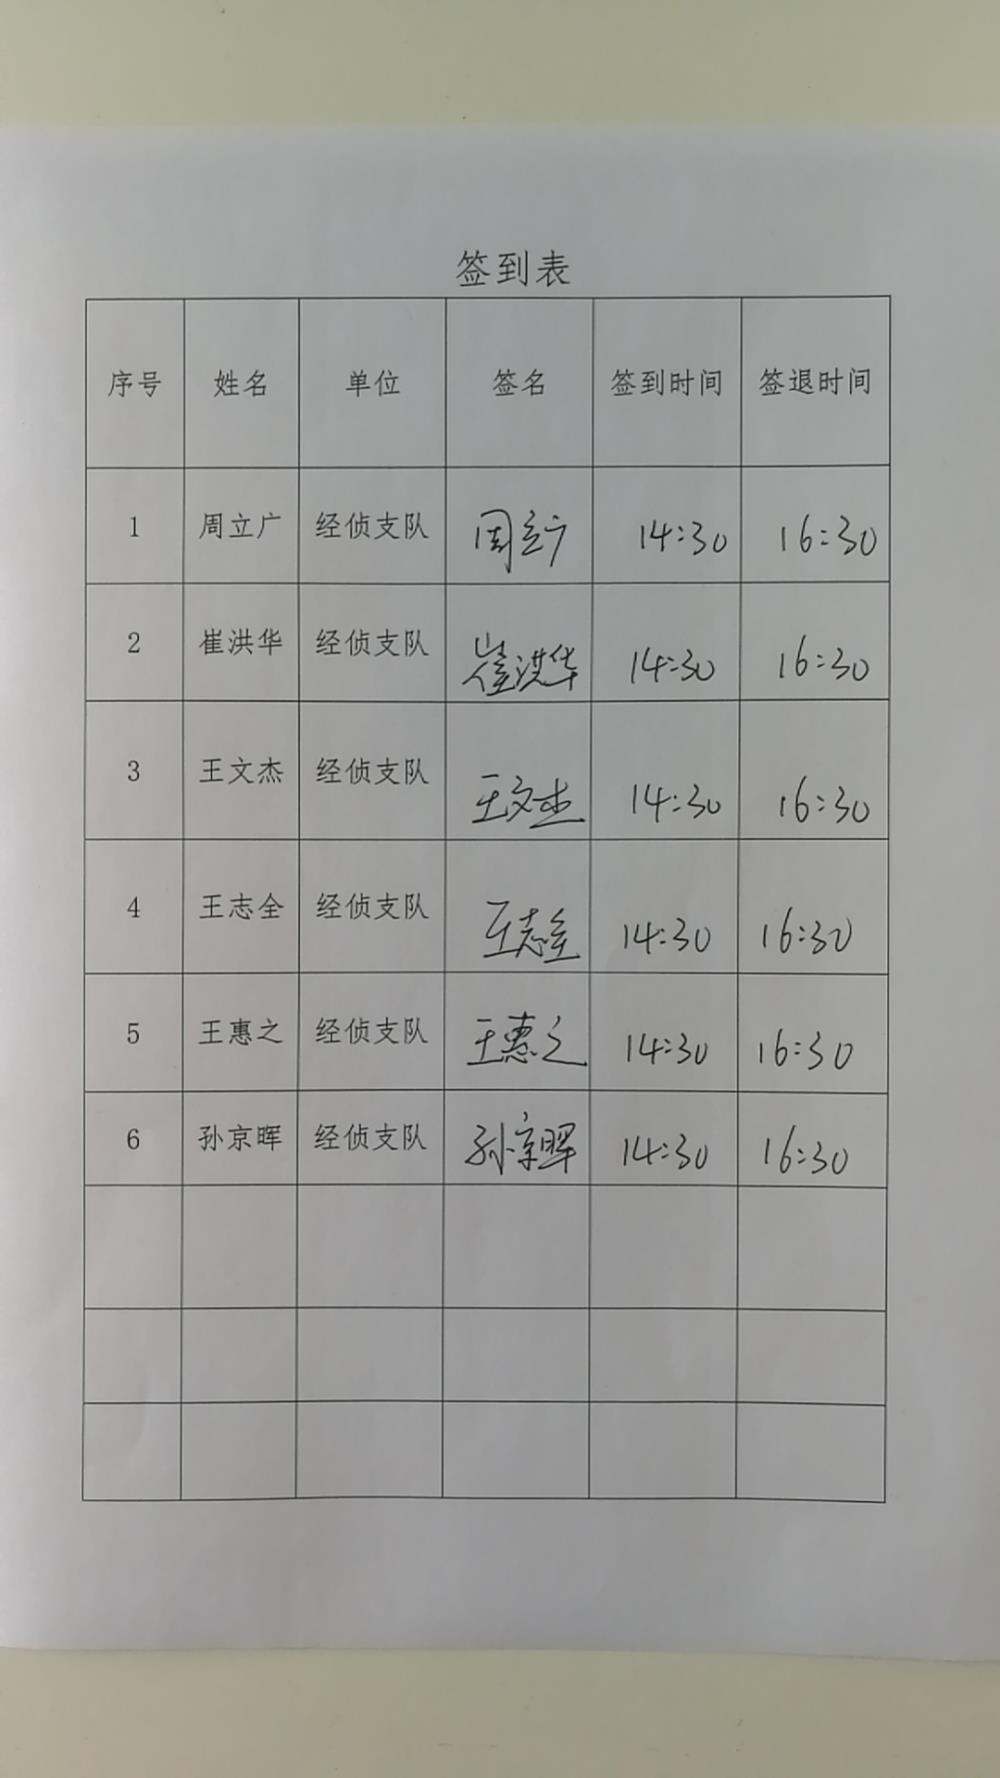 签到表
序号 姓名 单位 签名 签到时间 签退时间
1 周立广 经侦支队 周立广 14:30 16:30
2 崔洪华 经侦支队 崔洪华 14:30 16:30
3 王文杰 经侦支队 王文杰 14:30 16:30
4 王志全 经侦支队 王志全 14:30 16:30
5 王惠之 经侦支队 王惠之 14:30 16:30
6 孙京晖 经侦支队 孙京晖 14:30 16:30